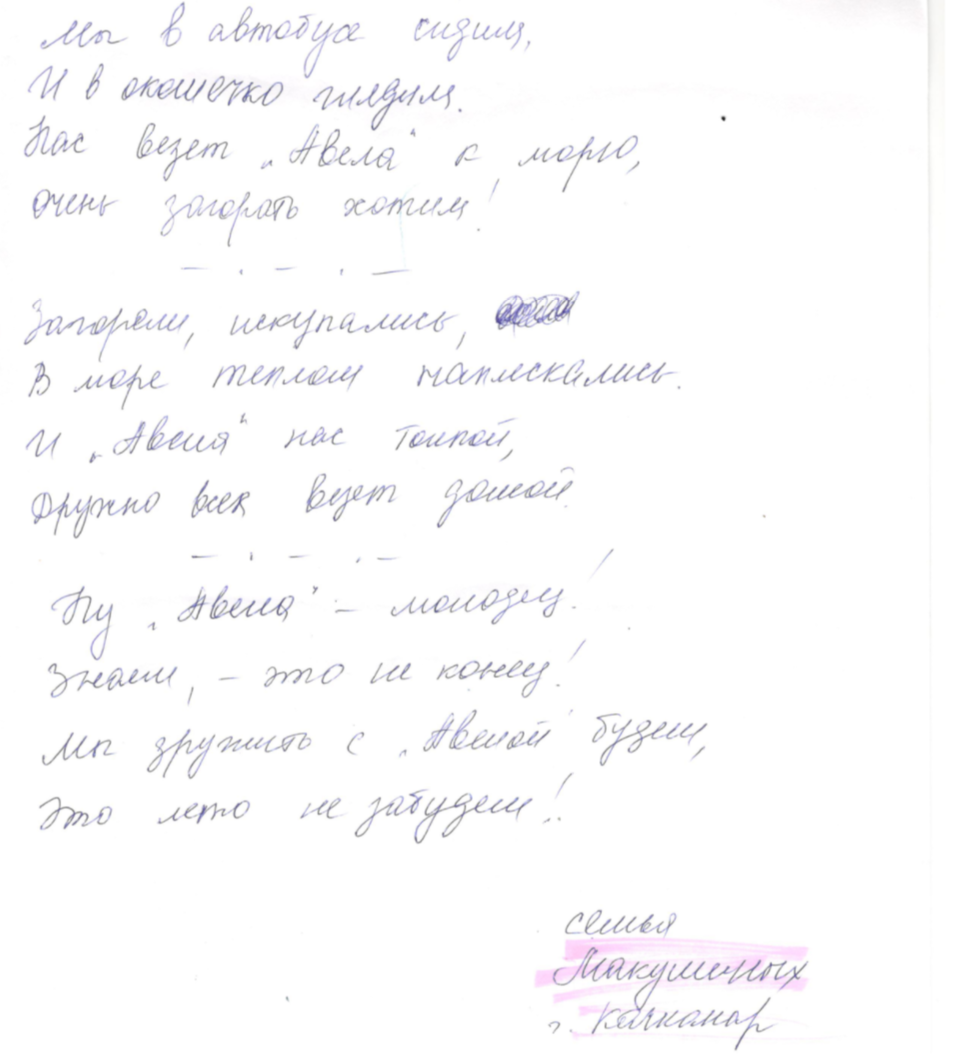 Мы в автобусе сидим,
И в окошечко глядим.
Нас везет „Авела" к морю,
очень загорать хотим!
— . — . —
Загорели, искупались,
В море теплом наплескались.
И „Авела" нас толпой,
Дружно всех везет домой.
— . — . —
Ну „Авела" – молодец!
Знаем, – это не конец!
Мы дружить с „Авелой" будем,
Это лето не забудем!
семья
г. Качканар